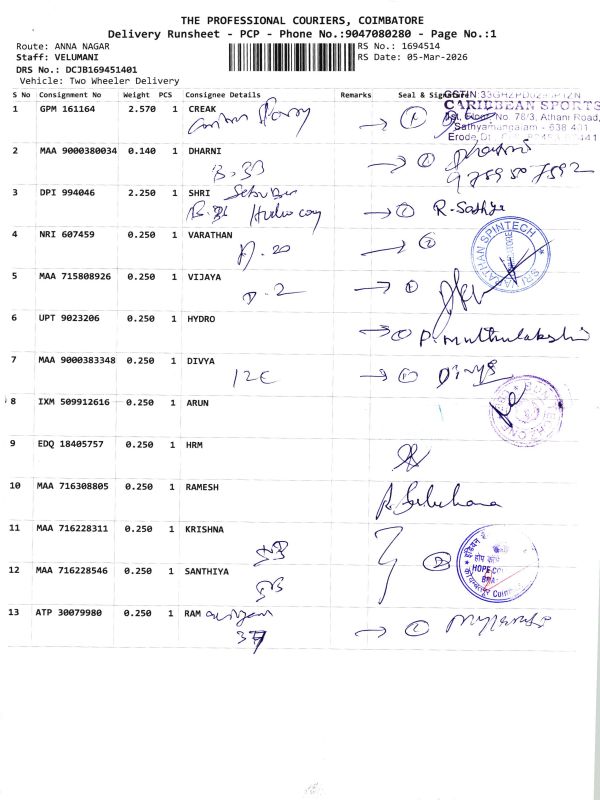 THE PROFESSIONAL COURIERS, COIMBATORE
Delivery Runsheet - PCP - Phone No.:9047080280 - Page No.:1
Route: ANNA NAGAR RS No.: 1694514
Staff: VELUMANI RS Date: 05-Mar-2026
DRS No.: DCJB169451401
Vehicle: Two Wheeler Delivery
S No Consignment No Weight PCS Consignee Details Remarks Seal & Signature
GSTIN:33GHZPD
1 GPM 161164 2.570 1 CREAK
CARIBBEAN SPORTS
No. 76/3, Athani Road,
Sathyamangalam - 638 401
Erode Dt
2 MAA 9000380034 0.140 1 DHARNI
B-33
9789507592
3 DPI 994046 2.250 1 SHRI
R-Sathya
4 NRI 607459 0.250 1 VARATHAN
A-20
SRI VARATHAN SPINTECH
5 MAA 715808926 0.250 1 VIJAYA
D-2
6 UPT 9023206 0.250 1 HYDRO
P. Muthulakshmi
7 MAA 9000383348 0.250 1 DIVYA
12C
Divya
8 IXM 509912616 0.250 1 ARUN
9 EDQ 18405757 0.250 1 HRM
10 MAA 716308805 0.250 1 RAMESH
11 MAA 716228311 0.250 1 KRISHNA
HOPE CO
12 MAA 716228546 0.250 1 SANTHIYA
13 ATP 30079980 0.250 1 RAM
37